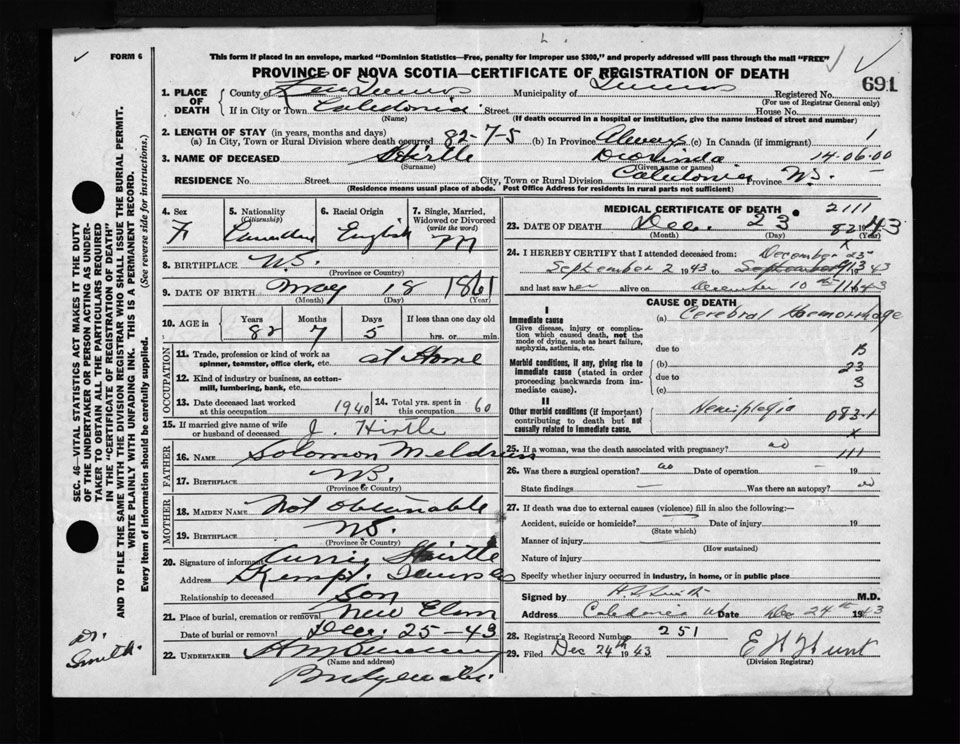 FORM 6
This form if placed in an envelope, marked "Dominion Statistics—Free, penalty for improper use $300," and properly addressed will pass through the mail "FREE"
PROVINCE OF NOVA SCOTIA—CERTIFICATE OF REGISTRATION OF DEATH
691
1. PLACE OF DEATH
County of Queens
Municipality of Queens
Registered No.
(For use of Registrar General only)
If in City or Town Caledonia
(Name)
Street
House No.
(If death occurred in a hospital or institution, give the name instead of street and number)
2. LENGTH OF STAY (in years, months and days)
(a) In City, Town or Rural Division where death occurred 82-7-5 (b) In Province Always (c) In Canada (if immigrant)
3. NAME OF DECEASED Hirtle Diorinda 14.06.00
(Surname) (Given name or names)
RESIDENCE No. Street City, Town or Rural Division Caledonia Province N.S.
(Residence means usual place of abode. Post Office Address for residents in rural parts not sufficient)
4. Sex
F
5. Nationality
(Citizenship)
Canadian
6. Racial Origin
English
7. Single, Married, Widowed or Divorced
(write the word)
M
8. BIRTHPLACE N.S.
(Province or Country)
9. DATE OF BIRTH May 18 1861
(Month) (Day) (Year)
10. AGE
Years Months Days If less than one day old
82 7 5 hrs. or min.
OCCUPATION
11. Trade, profession or kind of work as spinner, teamster, office clerk, etc. at Home
12. Kind of industry or business, as cotton-mill, lumbering, bank, etc.
13. Date deceased last worked at this occupation 1940
14. Total yrs. spent in this occupation 60
15. If married give name of wife or husband of deceased J. Hirtle
FATHER
16. NAME Solomon
17. BIRTHPLACE N.S.
(Province or Country)
MOTHER
18. MAIDEN NAME Not obtainable
19. BIRTHPLACE N.S.
(Province or Country)
20. Signature of informant Hirtle
Address Kempt, Queens Co
Relationship to deceased Son
21. Place of burial, cremation or removal New Elm
Date of burial or removal Dec. 25-43
22. UNDERTAKER
(Name and address)
Bridgewater
MEDICAL CERTIFICATE OF DEATH
2111
23. DATE OF DEATH Dec. 23 1943
(Month) (Day) (Year)
82
24. I HEREBY CERTIFY that I attended deceased from:
September 2 1943 to December 23 1943
and last saw her alive on December 10th 1943
CAUSE OF DEATH
I
Immediate cause
Give disease, injury or complication which caused death, not the mode of dying, such as heart failure, asphyxia, asthenia, etc.
(a) Cerebral Haemorrhage
due to
B
Morbid conditions, if any, giving rise to immediate cause (stated in order proceeding backwards from immediate cause).
(b)
23
due to
3
(c)
II
Other morbid conditions (if important) contributing to death but not causally related to immediate cause.
Hemiplegia
083-1
25. If a woman, was the death associated with pregnancy? no
111
26. Was there a surgical operation? no Date of operation - 19
State findings — Was there an autopsy? no
27. If death was due to external causes (violence) fill in also the following:—
Accident, suicide or homicide? Date of injury 19
(State which)
Manner of injury
(How sustained)
Nature of injury
Specify whether injury occurred in industry, in home, or in public place
Signed by Smith M.D.
Address Caledonia Date Dec 24th 1943
28. Registrar's Record Number 251
29. Filed Dec 24th 1943 E H Hunt
(Division Registrar)
SEC. 46—VITAL STATISTICS ACT MAKES IT THE DUTY
OF THE UNDERTAKER OR PERSON ACTING AS UNDER-
TAKER TO OBTAIN ALL THE PARTICULARS REQUIRED
IN THE "CERTIFICATE OF REGISTRATION OF DEATH"
AND TO FILE THE SAME WITH THE DIVISION REGISTRAR WHO SHALL ISSUE THE BURIAL PERMIT.
WRITE PLAINLY WITH UNFADING INK. THIS IS A PERMANENT RECORD.
Every item of information should be carefully supplied. (See reverse side for instructions.)
Dr.
Smith.